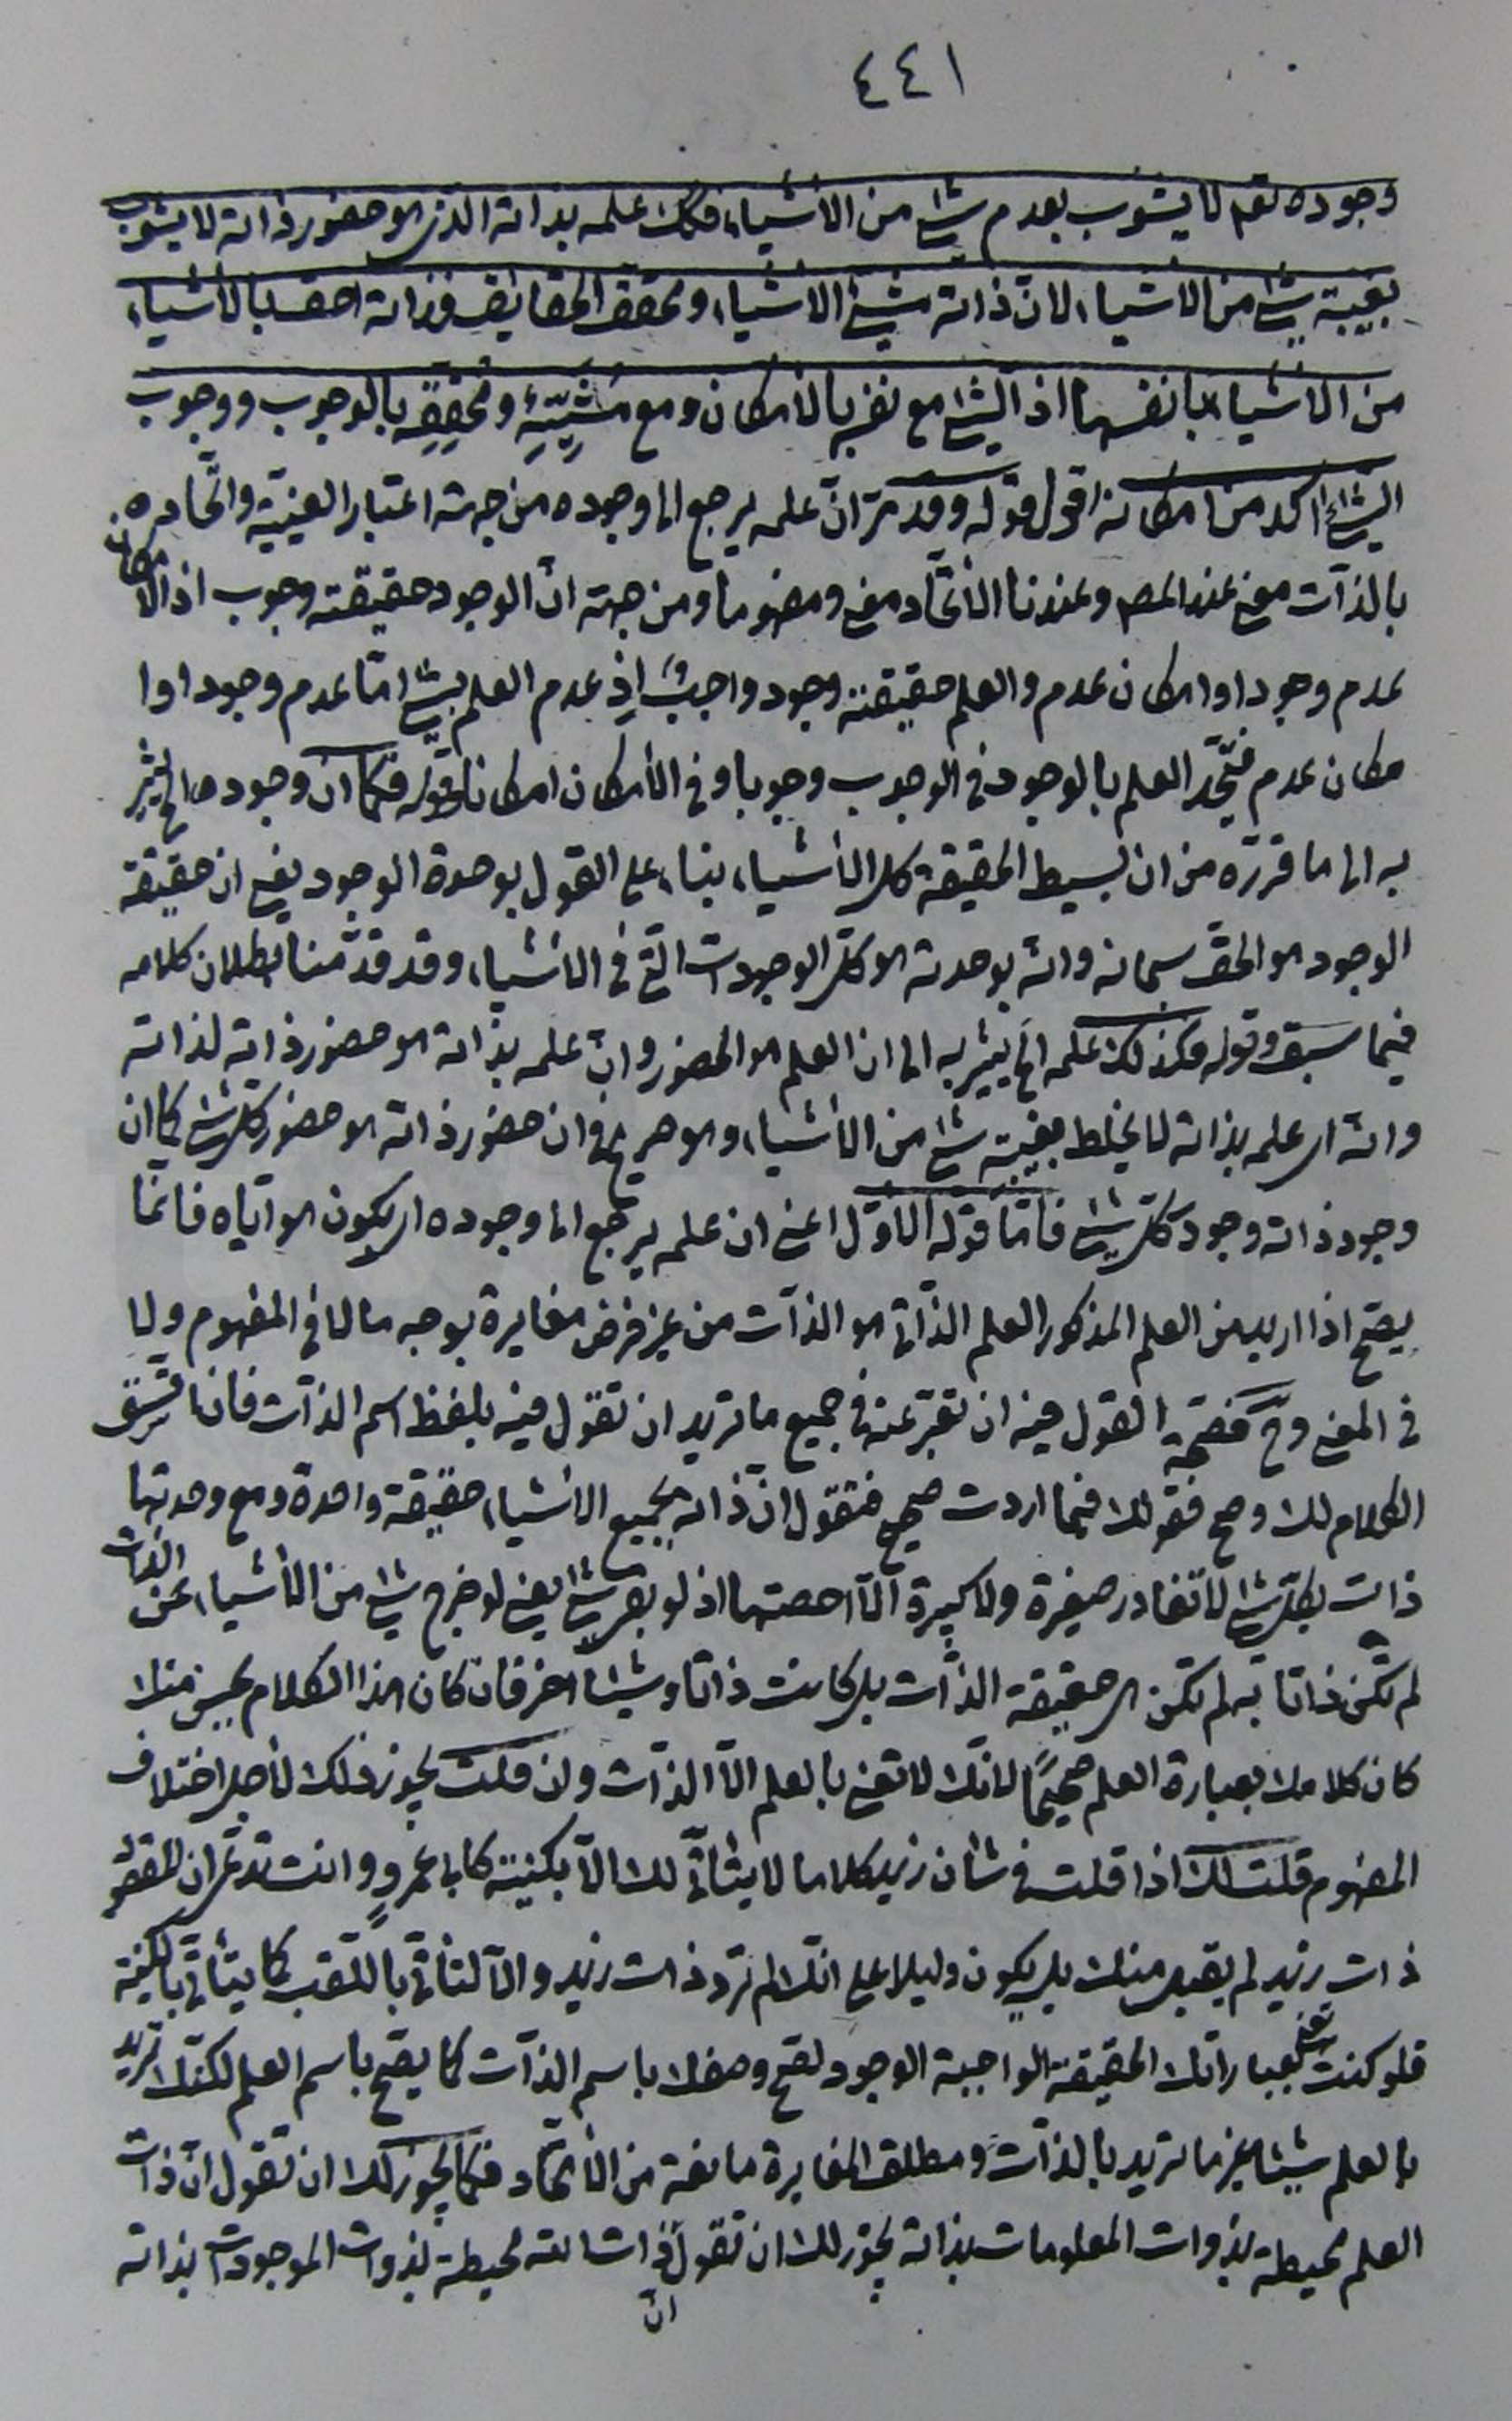 ٤٤١
وجوده تعم لا يشوب بعدم شئ من الأشياء فكك علمه بذاته الذى هو حضور ذاته لا يشوب
بغيبة شئ من الاشياء لانّ ذاته مشيّئ الاشياء ومحقق الحقايق فذاته احق بالأشياء
من الأشياء بانفسها اذ الشئ مع نفسه بالامكان ومع مشيّئه ومحقِّقه بالوجوب ووجوب
الشئ اكد من امكانه اقول قوله وقد مرّ انّ علمه يرجع الى وجوده من جهة اعتبار العينيّة واتّحاده
بالذّات معنى عند المص وعندنا الأتّحاد معنى ومفهوما ومن جهة انّ الوجود حقيقته وجوب اذ الامكان
عدم وجود او امكان عدم والعلم حقيقته وجود واجبىّ اذ عدم العلم بشئ امّا عدم وجود او ا
مكان عدم فيتّحد العلم بالوجود فى الوجوب وجوبا وفى الأمكان امكانا وقوله فكما ان وجوده الخ يشير
به الى ما قرّره من ان بسيط الحقيقة كل الأشياء بناء على القول بوحدة الوجود يعنى ان حقيقة
الوجود هو الحق سبحانه وانّه بوحدته هو كلّ الوجودات الّتى فى الأشياء وقد قدّمنا بطلان كلامه
فيما سبق وقوله فكذلك علمه الخ يشير به الى ان العلم هو الحضور وانّ علمه بذاته هو حضور ذاته لذاته
وانّه اى علمه بذاته لا يخلط بغيبة شئ من الأشياء وهو صريح فى ان حضور ذاته هو حضور كلّ شئ كما ان
وجود ذاته وجود كلّ شئ فامّا قوله الأوّل اعنى ان علمه يرجع الى وجوده اى يكون هو ايّاه فانّما
يصحّ اذا اريد من العلم المذكور العلم الذّاتى هو الذّات من غير فرض مغايرة بوجه ما لا فى المفهوم ولا
فى المعنى وح فصحّة القول فيه ان تعبّر عنه فى جميع ما تريد ان تقول فيه بلفظ اسم الذّات فاذا اتّسق
الكلام لك وصح فقولك فيما اردت صحيح فتقول انّ ذاته بجميع الأشياء حقيقة واحدة ومع وحدتها
ذات بكلّ شئ لا تغادر صغيرة ولا كبيرة الّا احصتها اذ لو بقى شئ يعنى لو خرج شئ من الأشياء عن الذّات
لم تكن ذاتا به لم تكن هى حقيقة الذّات بل كانت ذاتا وشيئا اخر فان كان هذا الكلام يحسن منك
كان كلامك بعبارة العلم صحيحًا لانّك لا تعنى بالعلم الّا الذّات وان قلت يجوز ذلك لأجل اختلاف
المفهوم قلت لك اذا قلت فى شان زيد كلاما لا يتأتّى لك الّا بكنيته كابى عمروٍ وانت تدّعى ان المقصود
ذات زيد لم يقبل منك بل يكون دليلا على انّك لم ترد ذات زيد والّا لتأتّى باللّقب كما يتأتّى بالكنية
فلو كنت تعنى بعباراتك الحقيقة الواجبة الوجود لصح وصفك باسم الذّات كما يصحّ باسم العلم لكنّك تريد
بالعلم شيئا غير ما تريد بالذّات ومطلق المغايرة مانعة من الأتّحاد فكما يجوز لك ان تقول انّ ذات
العلم محيطة بذوات المعلومات بذاته يجوز لك ان تقول ذات الله محيطة بذوات الموجودات بذاته
انّ